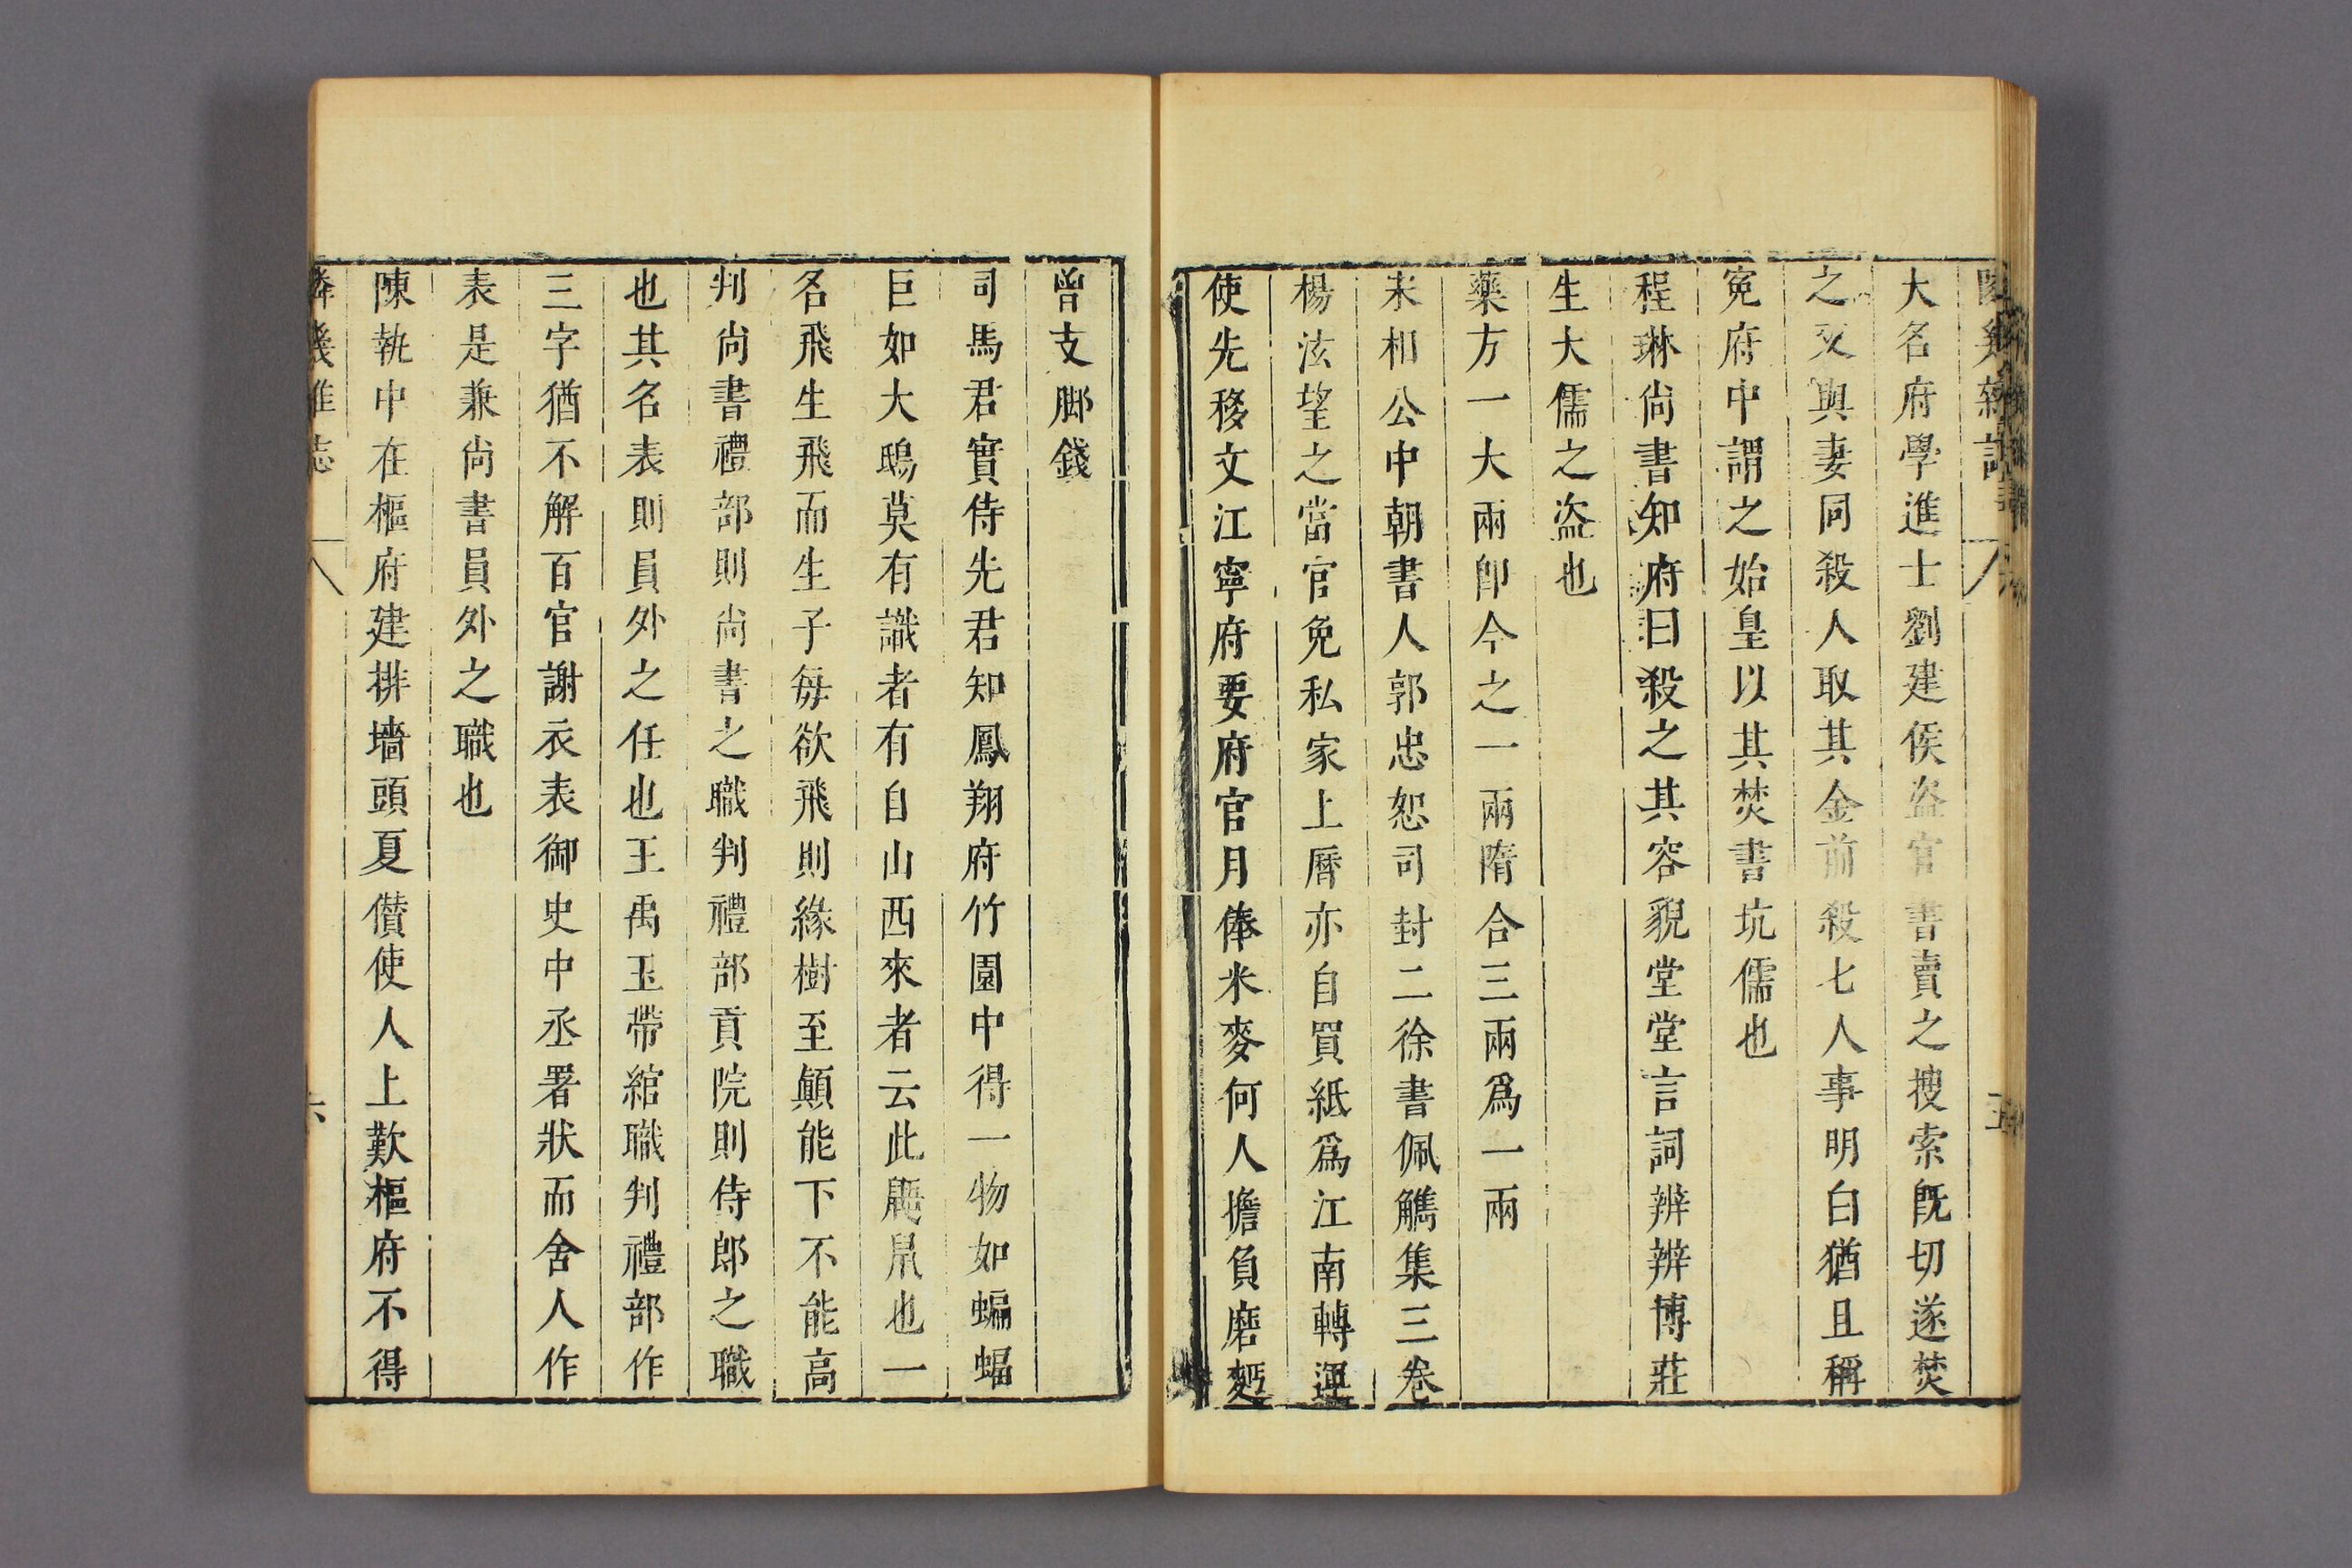 大名府學進士劉建侯盜官書賣之搜索旣切遂焚
之又與妻同殺人取其金前殺七人事明白猶且稱
寃府中謂之始皇以其焚書坑儒也
程琳尚書知府曰殺之其容貌堂堂言詞辨辨博莊
生大儒之盜也
藥方一大兩卽今之一兩隋合三兩爲一兩
宋相公中朝書人郭忠恕司封二徐書佩觿集三卷
楊泫望之當官免私家上曆亦自買紙爲江南轉運
使先移文江寧府要府官月俸米麥何人擔負磨麪
曾支脚錢
司馬君實侍先君知鳳翔府竹園中得一物如蝙蝠
巨如大鴟莫有識者有自山西來者云此鼯鼠也一
名飛生飛而生子每欲飛則緣樹至顚能下不能高
判尚書禮部則尚書之職判禮部貢院則侍郎之職
也其名表則員外之任也王禹玉帶綰職判禮部作
三字猶不解百官謝衣表御史中丞署狀而舍人作
表是兼尚書員外之職也
陳執中在樞府建排墻頭夏儧使人上歎樞府不得
幾雜志